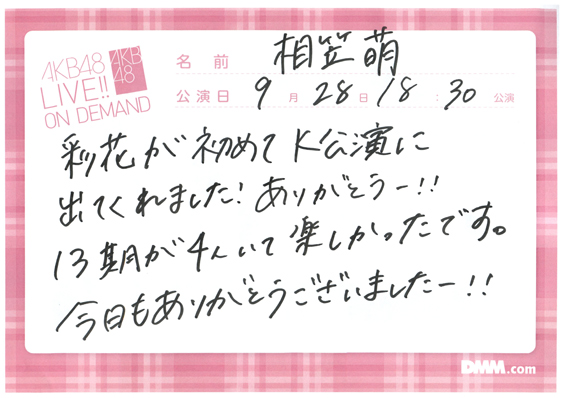 AKB48
LIVE!!
ON DEMAND
AKB
48
名前 相笠萌
公演日 9月28日 18:30 公演
彩花が初めてK公演に
出てくれました!ありがとうー!!
13期が4人いて楽しかったです。
今日もありがとうございましたー!!
DMM.com